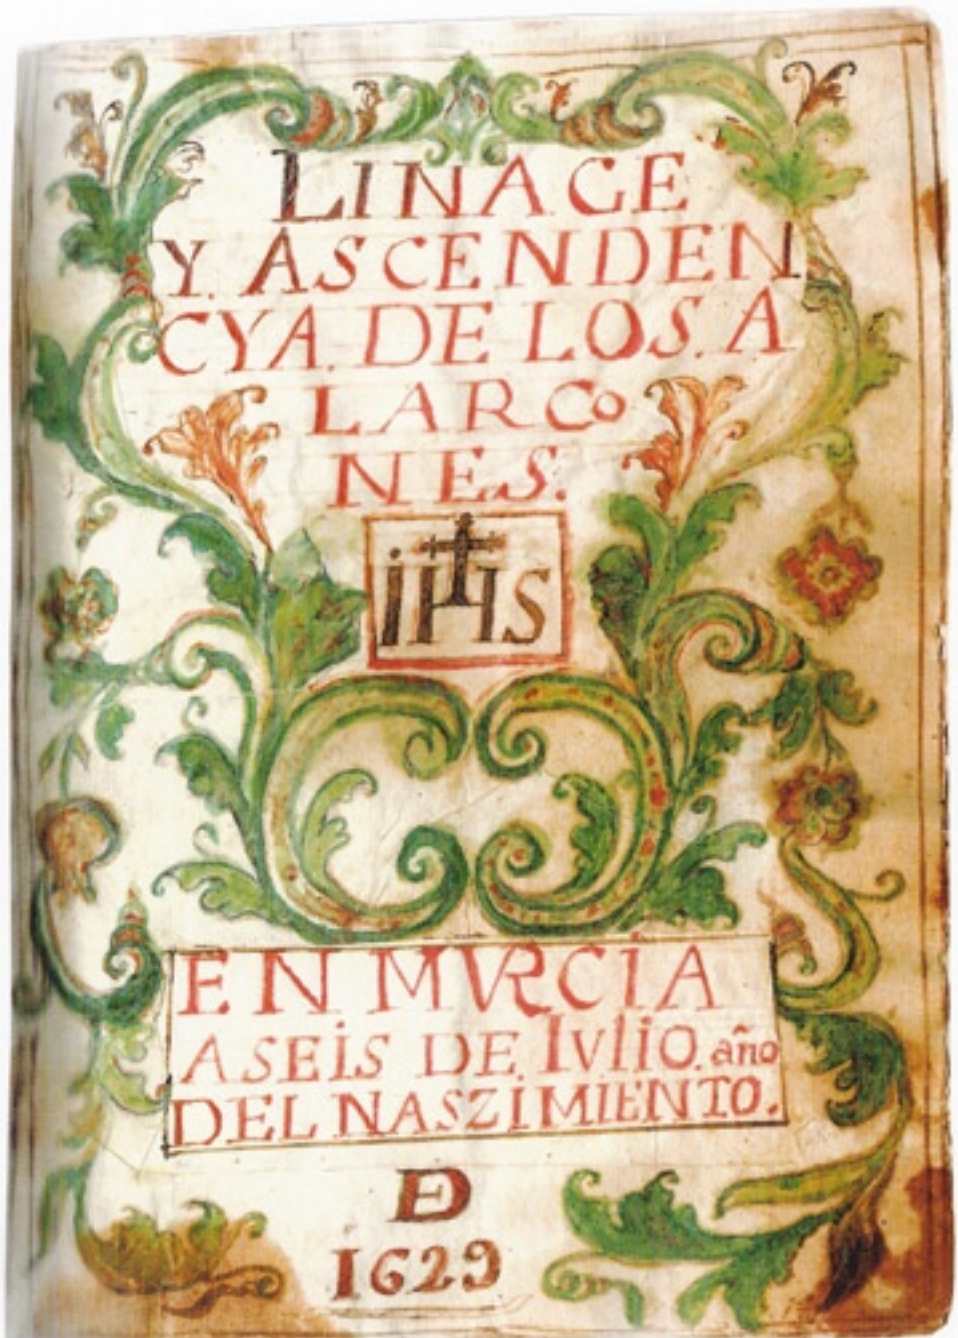 LINAGE
Y ASCENDEN
CYA. DE LOS. A
LARCo
NES.
iHS
EN MVRCiA
A SEiS DE Iulio. año
DEL NASZiMIENTO.
DE
1629